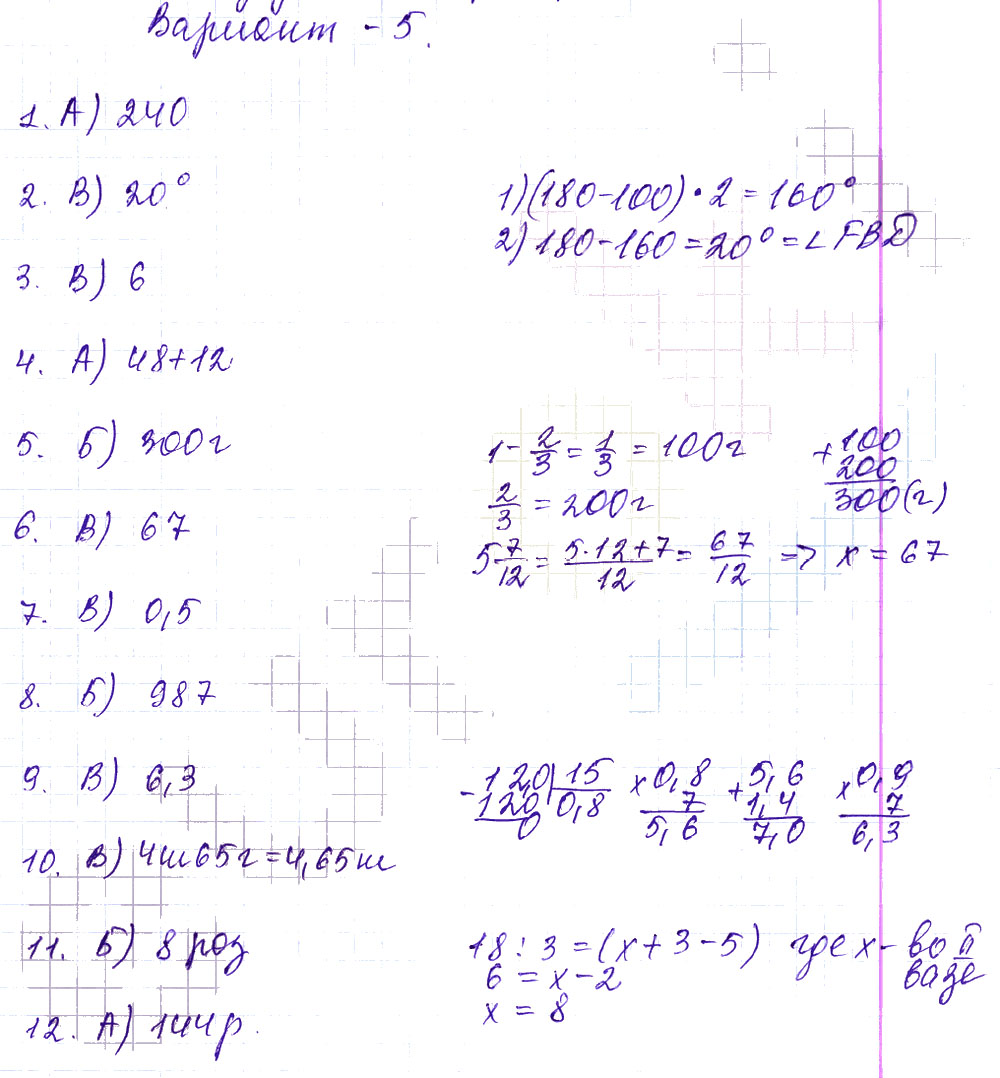 Вариант - 5.
1. А) 240
2. В) 20°
1) (180-100) · 2 = 160°
2) 180-160 = 20° = ∠ FBD
3. В) 6
4. А) 48+12
5. Б) 300г
1 - 2/3 = 1/3 = 100г
2/3 = 200г
+100
200
300(г)
6. В) 67
5 7/12 = 5·12+7/12 = 67/12 => x = 67
7. В) 0,5
8. Б) 987
9. В) 6,3
-12,0 | 15
120 0,8
0
×0,8
7
5,6
+5,6
1,4
7,0
×0,9
7
6,3
10. В) 4т65г=4,65т
11. Б) 8 роз
18 : 3 = (x+3-5) где x - во
вазе
6 = x - 2
x = 8
12. А) 144р.